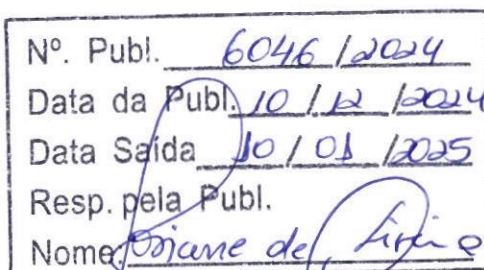 Nº. Publ. 6046 / 2024
Data da Publ. 10 / 12 / 2024
Data Saída 10 / 01 / 2025
Resp. pela Publ.
Nome: de